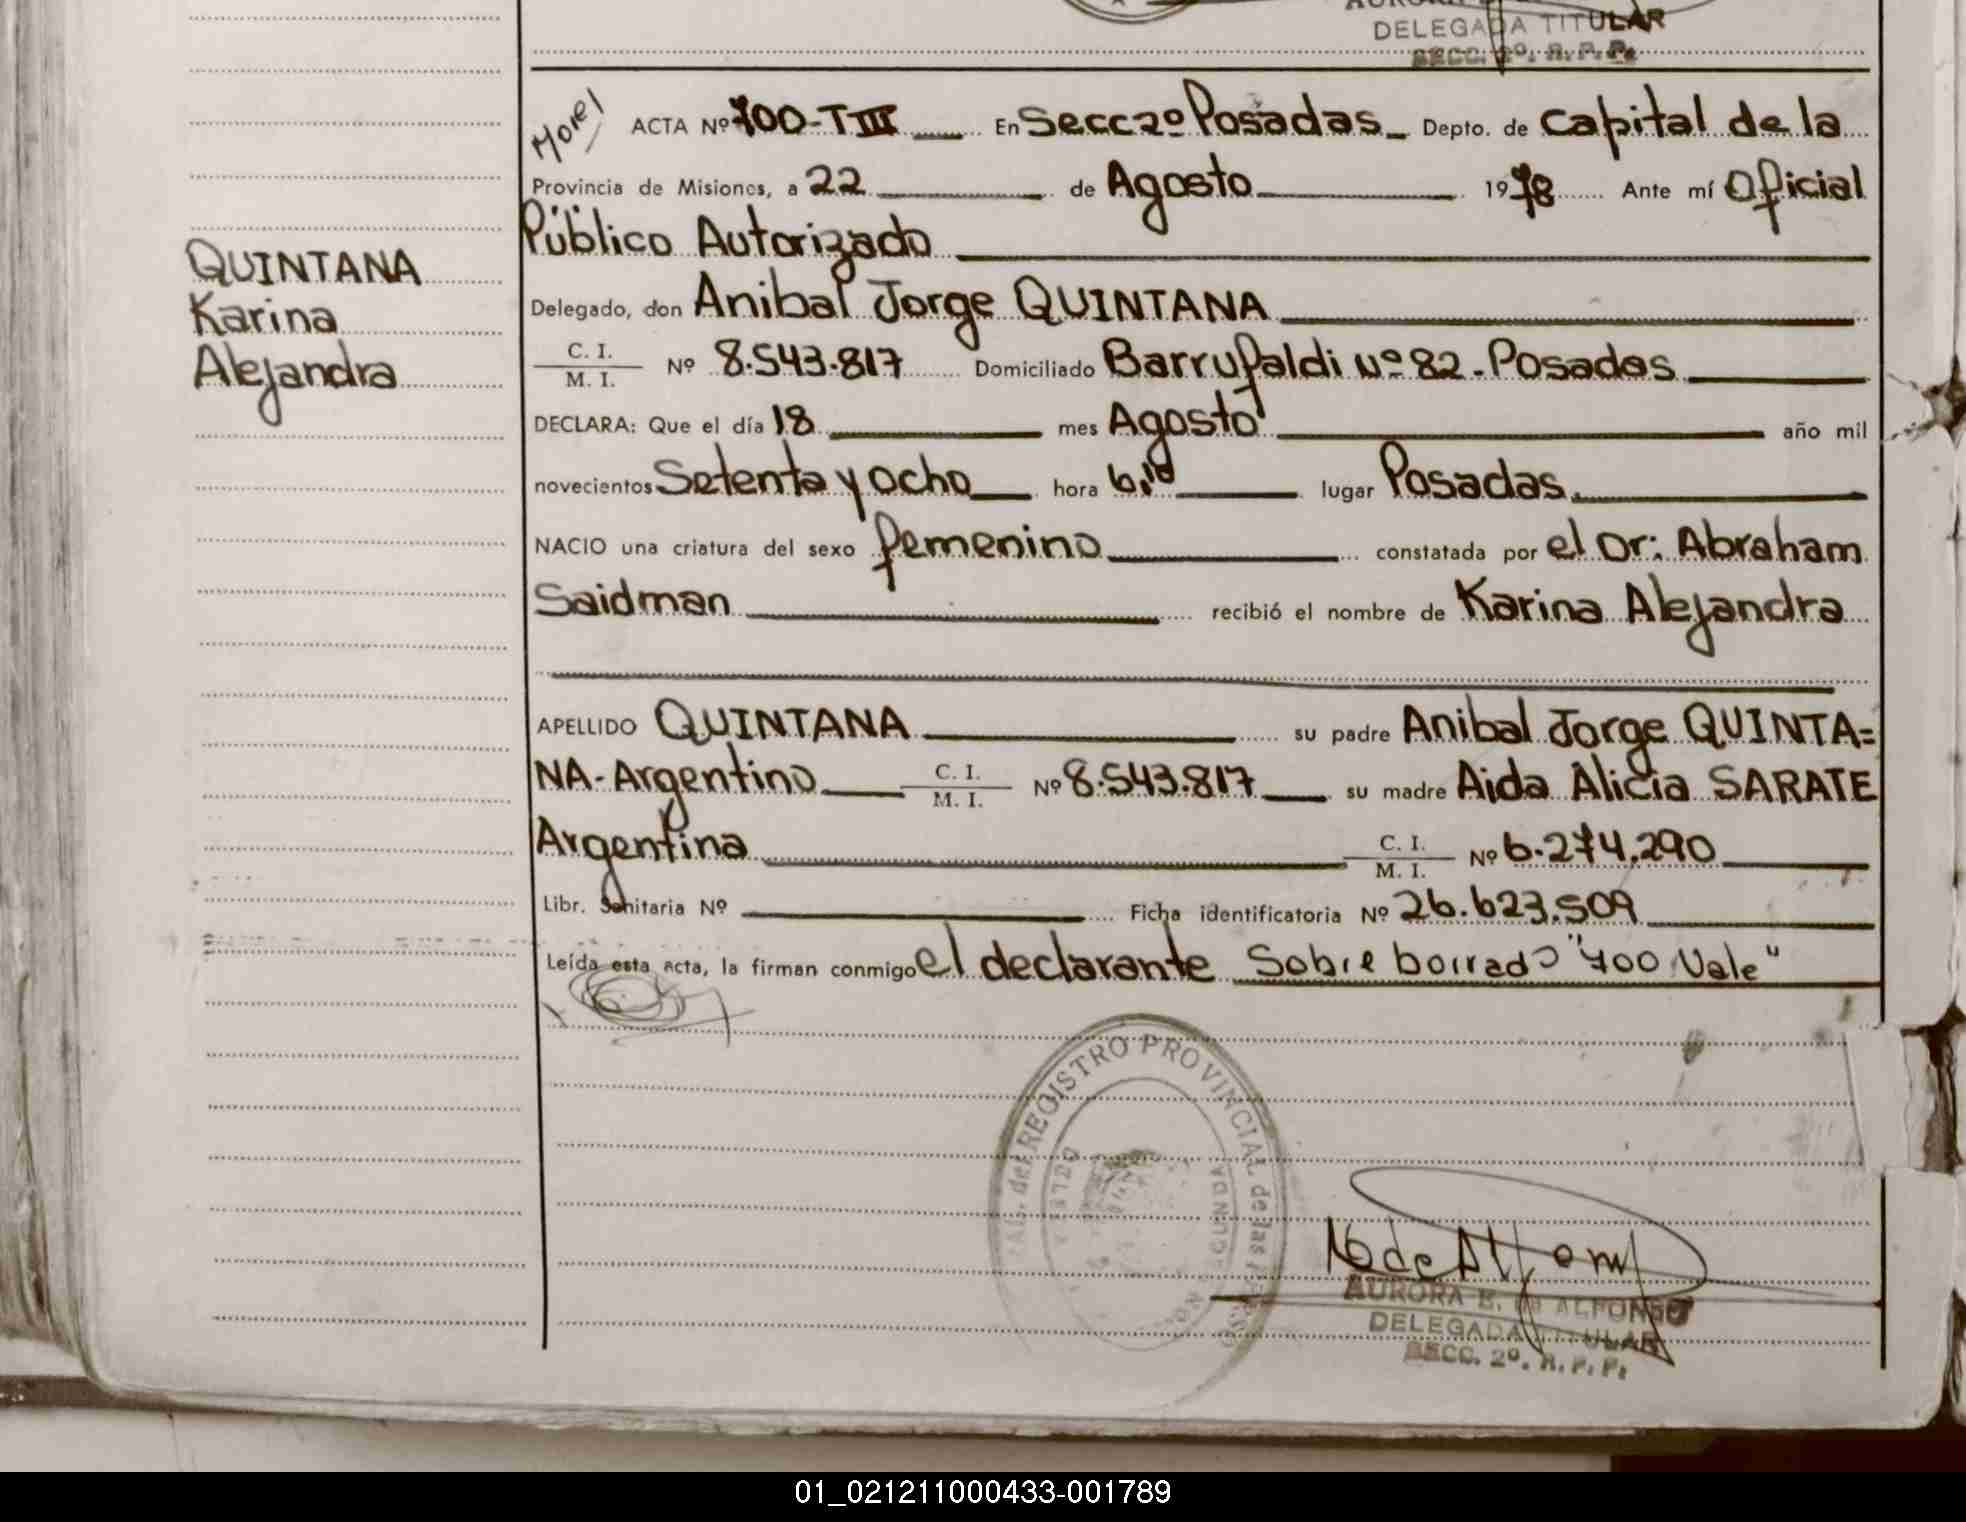 DELEGADA TITULAR
SECC. 2º. R. P. P.
ACTA Nº 700-TIII En Secc 2º Posadas Depto. de Capital de la
Provincia de Misiones, a 22 de Agosto 1978 Ante mí Oficial
Público Autorizado
QUINTANA
Karina
Alejandra
Delegado, don Anibal Jorge QUINTANA
C. I.
M. I. Nº 8.543.817 Domiciliado Barrufaldi Nº 82 - Posadas
DECLARA: Que el día 18 mes Agosto año mil
novecientos Setenta y ocho hora 6,10 lugar Posadas.
NACIO una criatura del sexo femenino constatada por el Dr: Abraham
Saidman recibió el nombre de Karina Alejandra
APELLIDO QUINTANA su padre Anibal Jorge QUINTA=
NA-Argentino C. I. M. I. Nº 8.543.817 su madre Aida Alicia SARATE
Argentina C. I. M. I. Nº 6.274.290
Libr. Sanitaria Nº Ficha identificatoria Nº 26.623.509
Leída esta acta, la firman conmigo el declarante Sobre borrado "700 Vale"
REGISTRO PROVINCIAL de las
AURORA E. de ALFONSO
DELEGADA TITULAR
SECC. 2º. R. P. P.
01_021211000433-001789